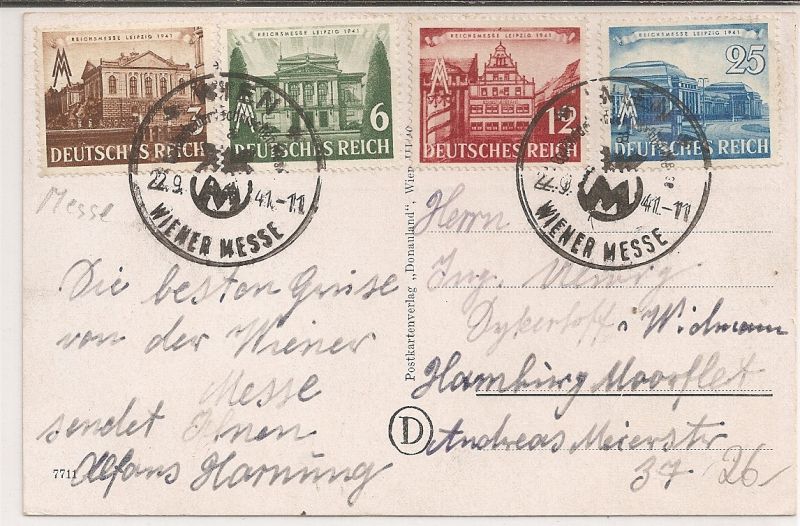 REICHSMESSE LEIPZIG 1941
3
DEUTSCHES REICH
REICHSMESSE LEIPZIG 1941
6
DEUTSCHES REICH
REICHSMESSE LEIPZIG 1941
12
DEUTSCHES REICH
REICHSMESSE LEIPZIG 1941
25
DEUTSCHES REICH
WIEN
22.9. 41.-11
M
WIENER MESSE
WIEN
22.9. 41.-11
M
WIENER MESSE
Messe
Die besten Grüse
von der Wiener
Messe
sendet Ihnen
Alfons Harnung
7711
Postkartenverlag „Donauland", Wien
D
Herrn
Ing.
Dykerhoff u Widmann
Hamburg Moorfleet
Andreas Meierstr
37 26